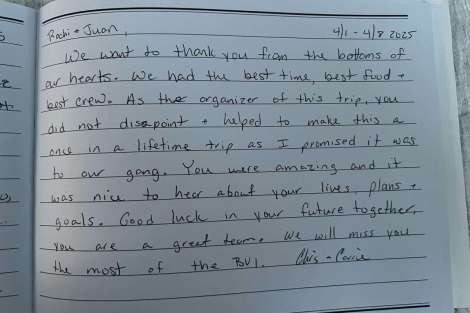 Rochi + Juan,
4/1 - 4/8 2025
We want to thank you from the bottoms of
our hearts. We had the best time, best food +
best crew. As the organizer of this trip, you
did not disapoint + helped to make this a
once in a lifetime trip as I promised it was
to our gang. You were amazing and it
was nice to hear about your lives, plans +
goals. Good luck in your future together,
you are a great team. We will miss you
the most of the BVI. Chis + Carrie